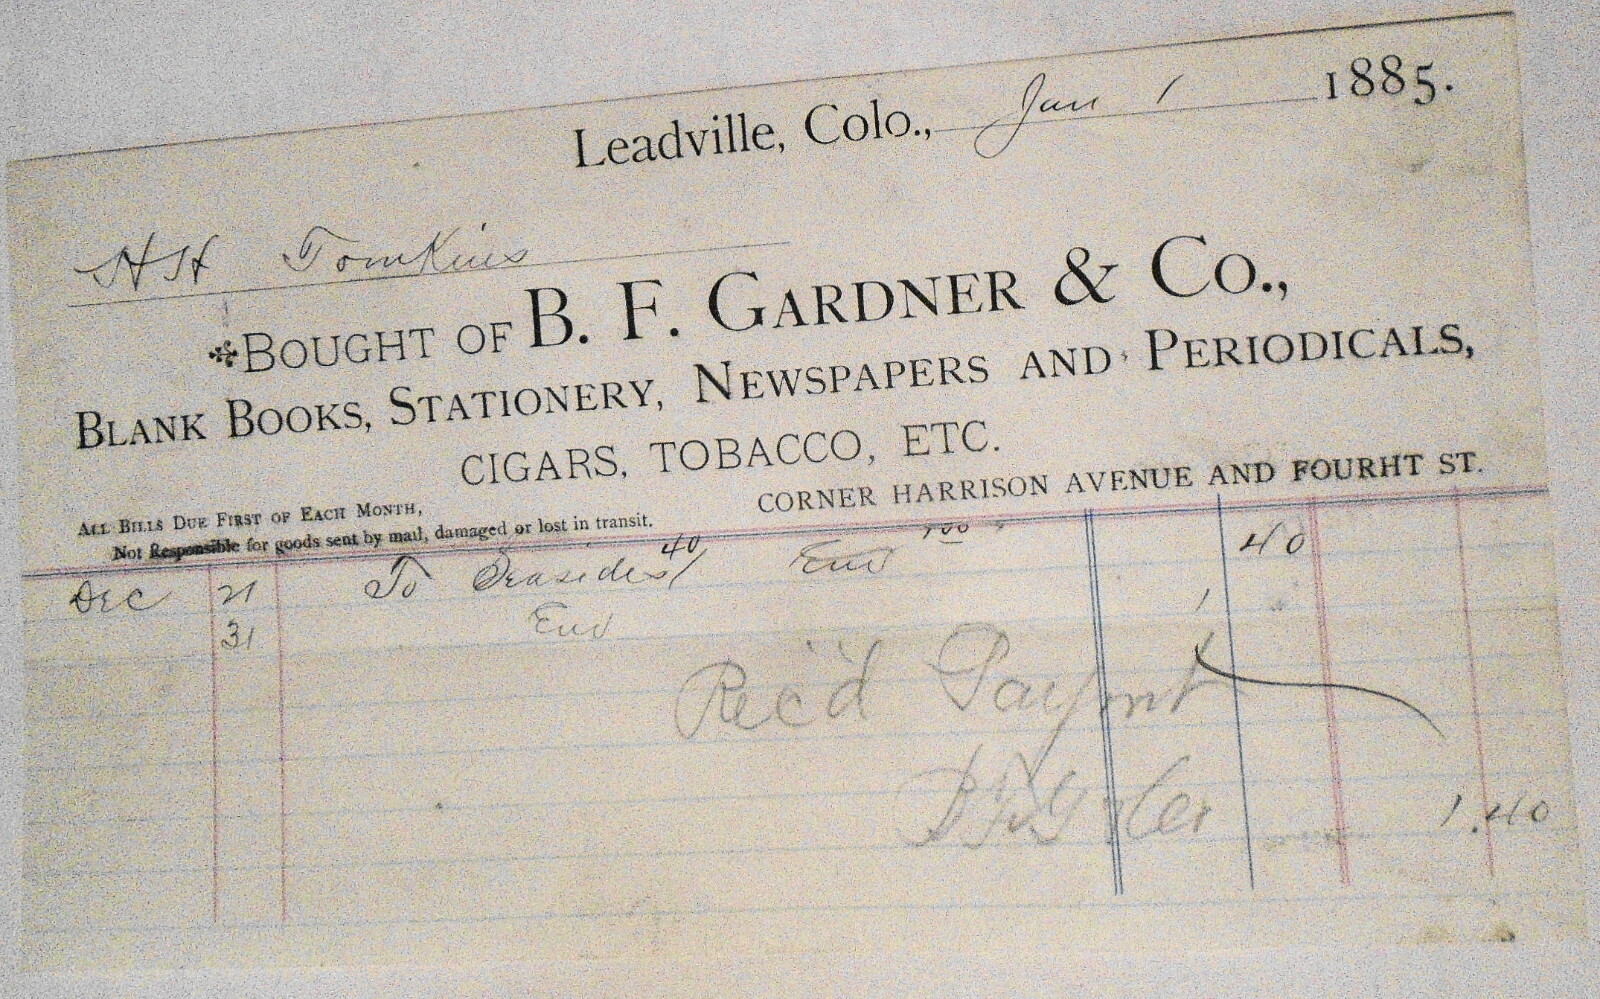 Leadville, Colo., Jan 1 1885.
H H Tomkins
BOUGHT OF B. F. GARDNER & CO.,
BLANK BOOKS, STATIONERY, NEWSPAPERS AND PERIODICALS,
CIGARS, TOBACCO, ETC.
ALL BILLS DUE FIRST OF EACH MONTH,
CORNER HARRISON AVENUE AND FOURHT ST.
Not Responsible for goods sent by mail, damaged or lost in transit.
Dec 21 To 40/ 100 40
31 1
Rec'd Paymt
B F G & Co
1.40